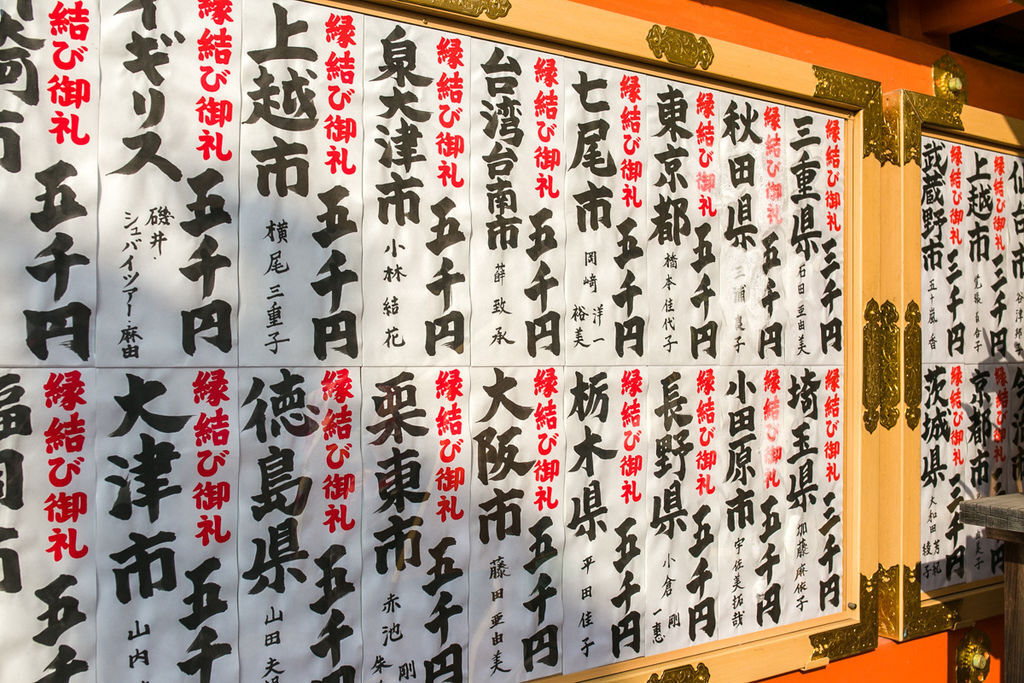 仙台市
縁結び御礼
三千円
上越市
縁結び御礼
三千円
武蔵野市
五十嵐 香
京都市
縁結び御礼
三千円
茨城県
大和田
綾子
縁結び御礼
三千円
三重県
石田 亜由美
縁結び御礼
五千円
秋田県
縁結び御礼
五千円
東京都
橋本佳代子
縁結び御礼
五千円
七尾市
岡崎 洋一
裕美
縁結び御礼
五千円
台湾台南市
薛 致承
縁結び御礼
五千円
泉大津市
小林 結花
縁結び御礼
五千円
上越市
横尾 三重子
縁結び御礼
五千円
イギリス
磯井
シュバイツアー・麻由
縁結び御礼
五千円
崎市
縁結び御礼
三千円
埼玉県
加藤麻依子
縁結び御礼
五千円
小田原市
宇佐美拓哉
縁結び御礼
五千円
長野県
小倉 剛
一恵
縁結び御礼
五千円
栃木県
平田 佳子
縁結び御礼
五千円
大阪市
藤田 亜由美
縁結び御礼
五千円
栗東市
赤池 剛
縁結び御礼
五千円
徳島県
山田
縁結び御礼
五千
大津市
山内
縁結び御礼
五千
福岡市